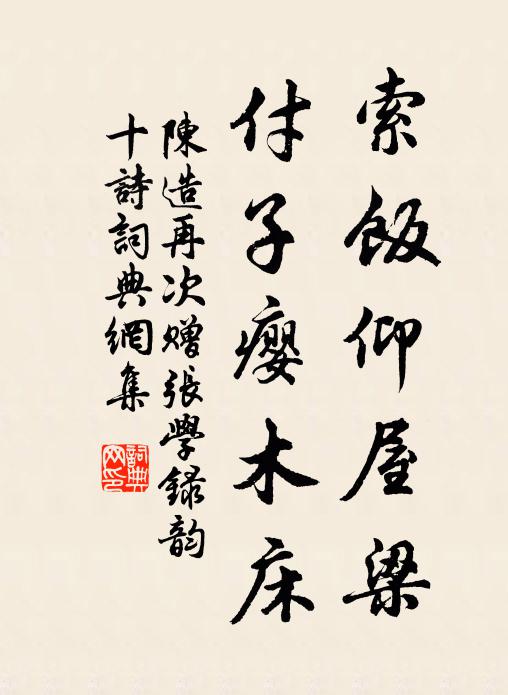 索飯仰屋梁
付子癭木床
陳造再次贈張學録韵
十詩詞典網集
詞典网印